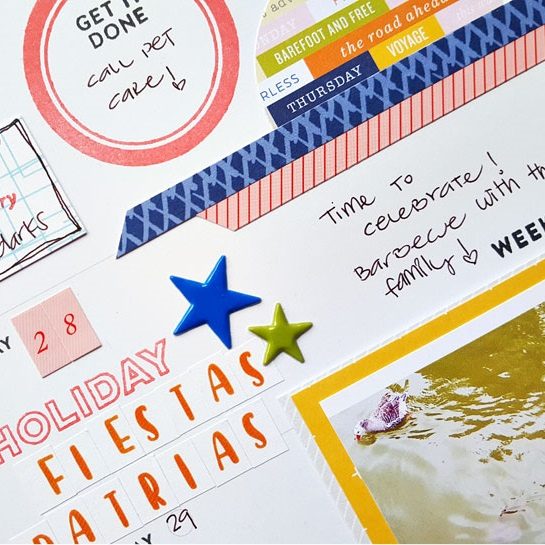 GET
DONE
call pet
care!
adv
THURSDAY
BAREFOOT AND FREE
the road ahead
RLESS
THURSDAY
VOYAGE
Time to
celebrate!
Barbecue with th
family!
WEE
ry
darts
AY
28
HOLIDAY
FIESTAS
PATRIAS
AY 29